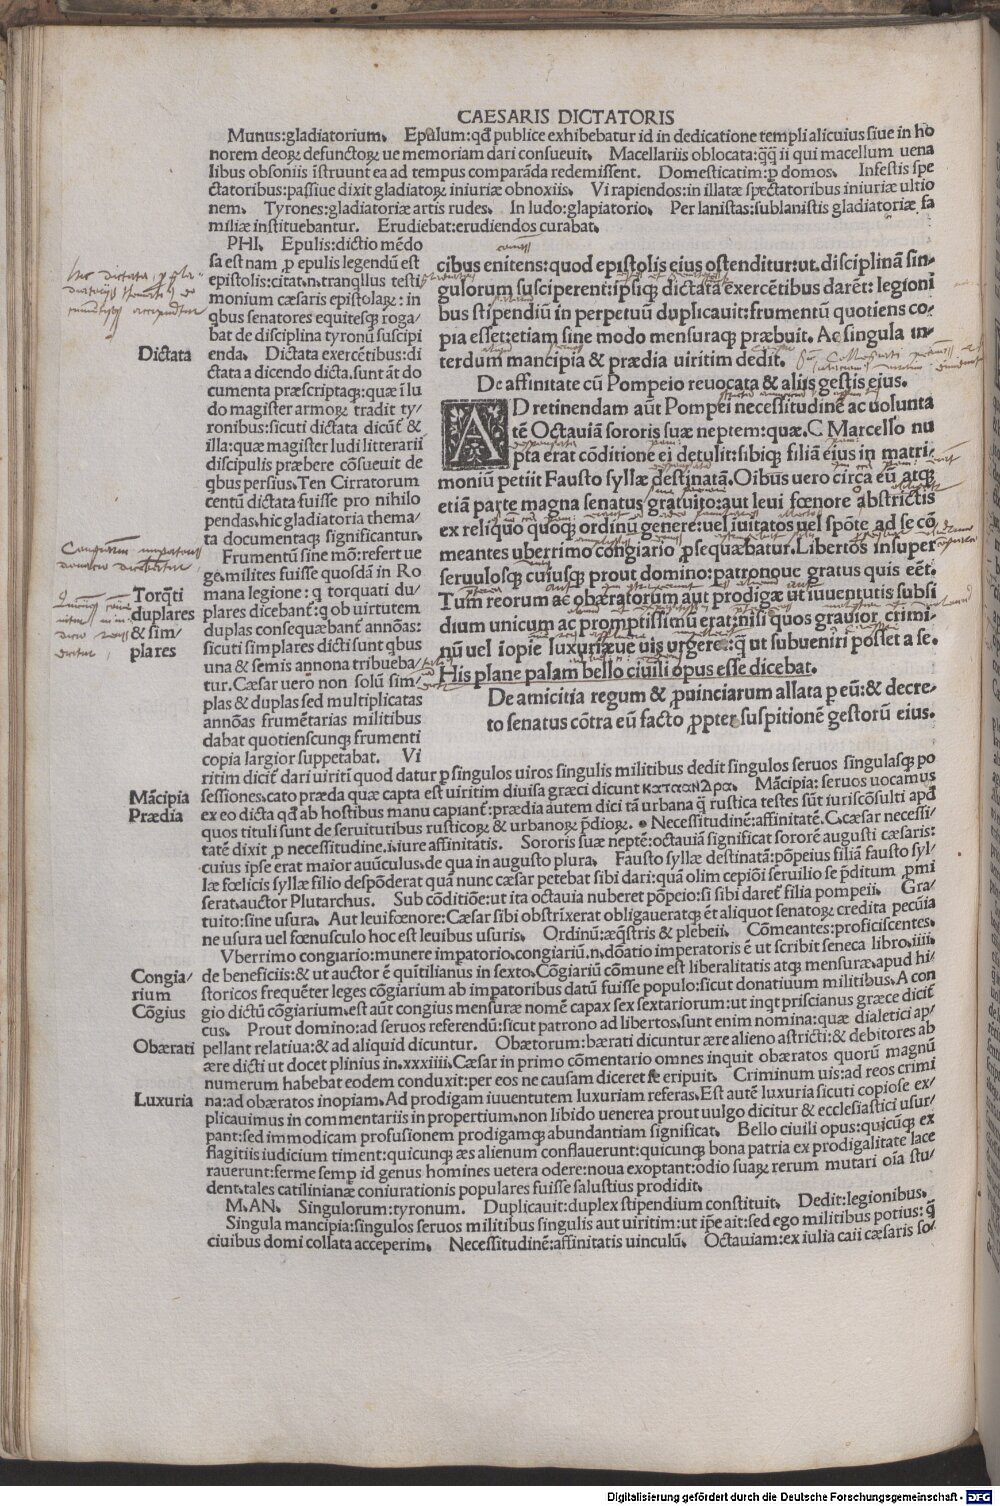 CAESARIS DICTATORIS
Munus:gladiatorium. Epulum:qđ publice exhibebatur id in dedicatione templi alicuius siue in ho
norem deoꝝ defunctoꝝ ue memoriam dari consueuit. Macellariis oblocata:q̄q̄ ii qui macellum uena
libus obsoniis ĩstruunt ea ad tempus comparãda redemissent. Domesticatim:ꝑ domos. Infestis spe
ctatoribus:passiue dixit gladiatoꝝ iniuriæ obnoxiis. Vi rapiendos:in illatæ spectatoribus iniuriæ ultio
nem. Tyrones:gladiatoriæ artis rudes. In ludo:glapiatorio. Per lanistas:sublanistis gladiatoriæ fa
miliæ instituebantur. Erudiebat:erudiendos curabat.
PHI. Epulis:dictio mẽdo
sa est nam ꝓ epulis legendũ est
epistolis:citat.n.tranqllus testi
monium cæsaris epistolaꝝ: in
qbus senatores equitesqꝫ roga/
bat de disciplina tyronũ suscipi
Dictata
enda. Dictata exercẽtibus:di
ctata a dicendo dicta.sunt ãt do
cumenta præscriptaqꝫ:quæ ĩ lu
do magister armoꝝ tradit ty/
ronibus:sicuti dictata dicũt̃ &
illa:quæ magister ludi litterarii
discipulis præbere cõsueuit de
qbus persius.Ten Cirratorum
centũ dictata fuisse pro nihilo
pendas.hic gladiatoria thema/
ta documentaqꝫ significantur.
Frumentũ sine mõ:refert ue
ge.milites fuisse quosdã in Ro
Torq̃ti
duplares
& sim/
plares
mana legione: q torquati du/
plares dicebant̃:q ob uirtutem
duplas consequæbant̃ annõas:
sicuti simplares dicti sunt qbus
una & semis annona tribueba/
tur.Cæsar uero non solũ sim/
plas & duplas sed multiplicatas
annõas frumẽtarias militibus
dabat quotienscunqꝫ frumenti
copia largior suppetabat. Vi
cibus enitens:quod epistolis eius ostenditur:ut.disciplinã sin-
gulorum susciperent:ipsiqꝫ dictata exercẽtibus darẽt: legioni
bus stipendiũ in perpetuũ duplicauit:frumentũ quotiens co-
pia esset:etiam sine modo mensuraqꝫ præbuit. Ac singula in-
terdum mancipia & prædia uiritim dedit.
De affinitate cũ Pompeio reuocata & aliis gestis eius.
AD retinendam aũt Pompei necessitudinẽ ac uolunta
tẽ Octauiã sororis suæ neptem:quæ.C Marcello nu
pta erat cõditione ei detulit:sibiqꝫ filiã eius in matri-
moniũ petiit Fausto syllæ destinatã.Oibus uero circa eũ atqꝫ
etiã parte magna senatus gratuito:aut leui fœnore abstrictis
ex reliquo quoqꝫ ordinũ genere:uel iuitatos uel spõte ad se cõ
meantes uberrimo congiario ꝓsequæbatur.Libertos insuper
seruulosqꝫ cuiusqꝫ prout domino:patronoue gratus quis eẽt.
Tum reorum ac obæratorum aut prodigæ ut iuuentutis subsi
dium unicum ac promptissimũ erat:nisi quos grauior crimi-
nũ uel ĩopiæ luxuriæue uis urgeret:q̃ ut subueniri posset a se.
His plane palam bello ciuili opus esse dicebat.
De amicitia regum & ꝓuinciarum allata ꝑ eũ:& decre-
to senatus cõtra eũ facto ꝓpter suspitionẽ gestorũ eius.
ritim dicit̃ dari uiritĩ quod datur ꝑ singulos uiros singulis militibus dedit singulos seruos singulasqꝫ po
Mãcipia
sessiones.cato præda quæ capta est uiritim diuisa græci dicunt κατανδρα. Mãcipia: seruos uocamus
Prædia
ex eo dicta qđ ab hostibus manu capiant̃:prædia autem dici tã urbana q̃ rustica testes sũt iuriscõsulti apđ
quos tituli sunt de seruitutibus rusticoꝝ & urbanoꝝ p̃dioꝝ. Necessitudinẽ:affinitatẽ.C.cæsar necessi/
tatẽ dixit ꝓ necessitudine.i.iure affinitatis. Sororis suæ neptẽ:octauiã significat sororẽ augusti cæsaris:
cuius ipse erat maior auũculus.de qua in augusto plura. Fausto syllæ destinatã:põpeius filiã fausto syl/
læ fœlicis syllæ filio despõderat quã nunc cæsar petebat sibi dari:quã olim cepiõi seruilio se p̃ditum ꝓmi
serat.auctor Plutarchus. Sub cõditiõe:ut ita octauia nuberet põpeio:si sibi daret̃ filia pompeii. Gra/
tuito:sine usura. Aut leui fœnore:Cæsar sibi obstrixerat obligaueratqꝫ ẽt aliquot senatoꝝ credita pecũia
ne usura uel fœnusculo hoc est leuibus usuris. Ordinũ:æq̃stris & plebeii. Cõmeantes:proficiscentes.
Vberrimo congiario:munere impatorio.congiariũ.n.dõatio imperatoris ẽ ut scribit seneca libro.iiii.
Congia/
rium
Cõgius
de beneficiis:& ut auctor ẽ quĩtilianus in sexto.Cõgiariũ cõmune est liberalitatis atqꝫ mensuræ.apud hi/
storicos frequẽter leges cõgiarium ab impatoribus datũ fuisse populo:sicut donatiuum militibus.A con
gio dictũ cõgiarium.est aũt congius mensuræ nomẽ capax sex sextariorum:ut inqt priscianus græce dicit̃
cus. Prout domino:ad seruos referendũ:sicut patrono ad libertos.sunt enim nomina:quæ dialetici ap/
Obærati
pellant relatiua:& ad aliquid dicuntur. Obætorum:bærati dicuntur ære alieno astricti:& debitores ab
ære dicti ut docet plinius in.xxxiiii.Cæsar in primo cõmentario omnes inquit obæratos quorũ magnũ
numerum habebat eodem conduxit:per eos ne causam diceret se eripuit. Criminum uis:ad reos crimi
Luxuria
na:ad obæratos inopiam.Ad prodigam iuuentutem luxuriam referas.Est autẽ luxuria sicuti copiose ex/
plicauimus in commentariis in propertium.non libido uenerea prout uulgo dicitur & ecclesiastici usur/
pant:sed immodicam profusionem prodigamqꝫ abundantiam significat. Bello ciuili opus:quicũqꝫ ex
flagitiis iudicium timent:quicunqꝫ æs alienum conflauerunt:quicunqꝫ bona patria ex prodigalitate lace
rauerunt:ferme semp id genus homines uetera odere:noua exoptant:odio suaꝝ rerum mutari oĩa stu/
dent.tales catilinianæ coniurationis populares fuisse salustius prodidit.
M.AN. Singulorum:tyronum. Duplicauit:duplex stipendium constituit. Dedit:legionibus.
Singula mancipia:singulos seruos militibus singulis aut uiritim:ut ip̃e ait:sed ego militibus potius: q̃
ciuibus domi collata acceperim. Necessitudinẽ:affinitatis uinculũ. Octauiam:ex iulia caii cæsaris so/
Digitalisierung gefördert durch die Deutsche Forschungsgemeinschaft - DFG